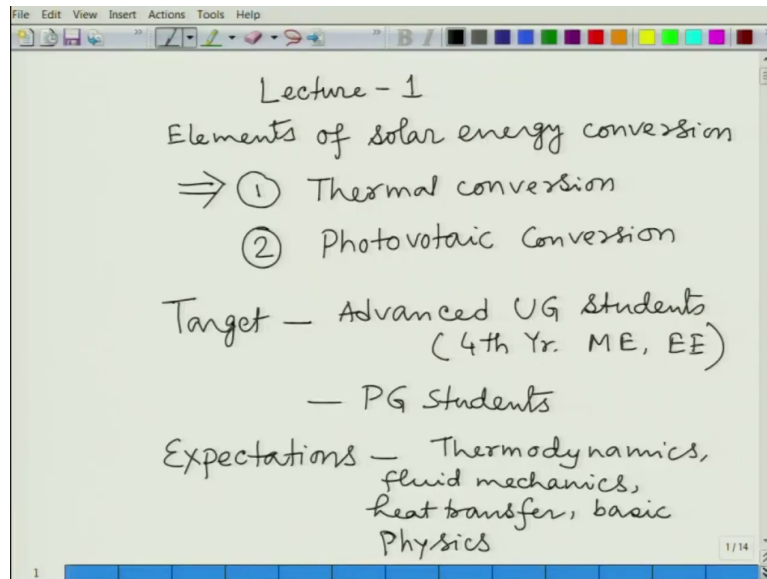 File Edit View Insert Actions Tools Help
Lecture - 1
Elements of solar energy conversion
⇒ ① Thermal conversion
② Photovotaic Conversion
Target — Advanced UG Students
(4th Yr. ME, EE)
— PG Students
Expectations — Thermodynamics,
fluid mechanics,
heat transfer, basic
Physics
1/14
1